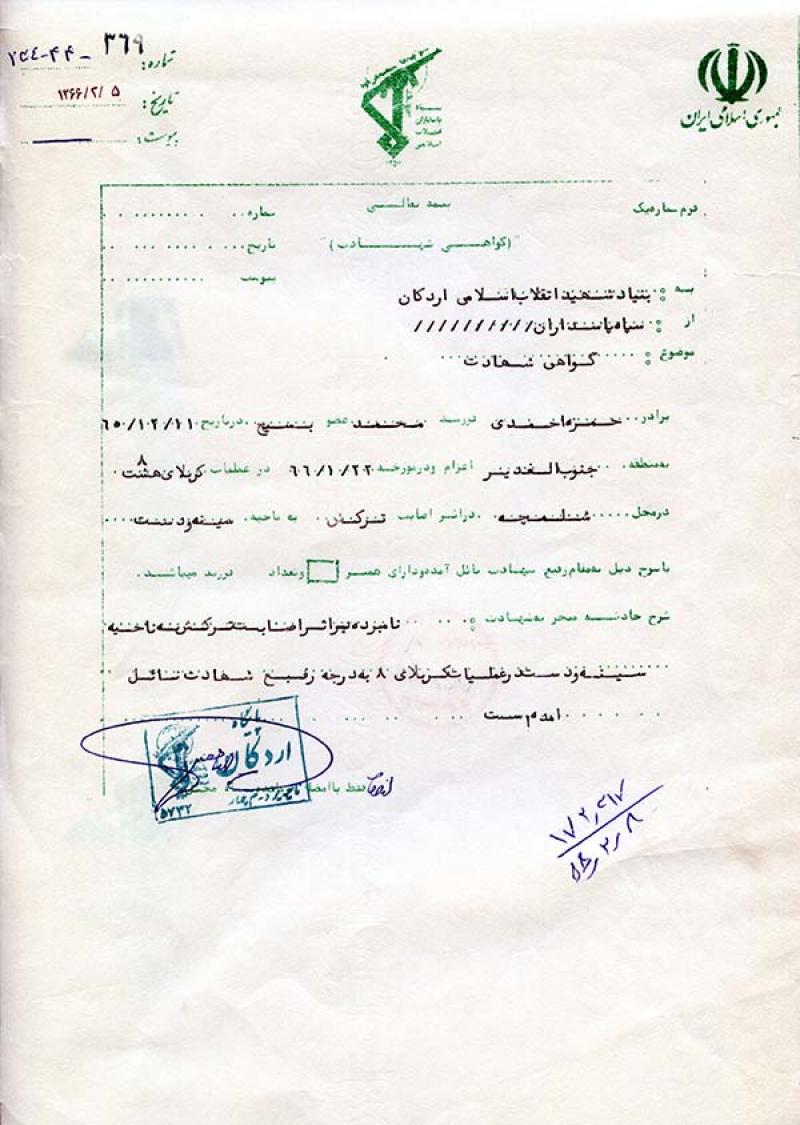 جمهوری اسلامی ایران
سپاه پاسداران انقلاب اسلامی
شماره: ۳۶۹ -
تاریخ: ۱۳۶۶/۲/۵
پیوست:
فرم شماره یک
بسمه تعالی
شماره
"(گواهی شهادت)"
تاریخ
پیوست
به : بنیاد شهید انقلاب اسلامی اردکان
از : سپاه پاسداران //////////
موضوع : گواهی شهادت
برادر حمزه احمدی فرزند محمد عضو بسیج در تاریخ ۶۵/۱۲/۱۱
به منطقه جنوب الغدیر اعزام و در مورخه در عملیات کربلای هشت ۸
در محل شلمچه در اثر اصابت ترکش به ناحیه سینه و دست
با شرح ذیل به مقام رفیع شهادت نائل آمده و دارای همسر و تعداد فرزند میباشد.
شرح حادثه منجر به شهادت : نامبرده براثر اصابت ترکش به ناحیه
سینه و دست در عملیات کربلای ۸ به درجه رفیع شهادت نائل
امده است
پایگاه
اردکان
۵۷۳۲
فقط با امضا